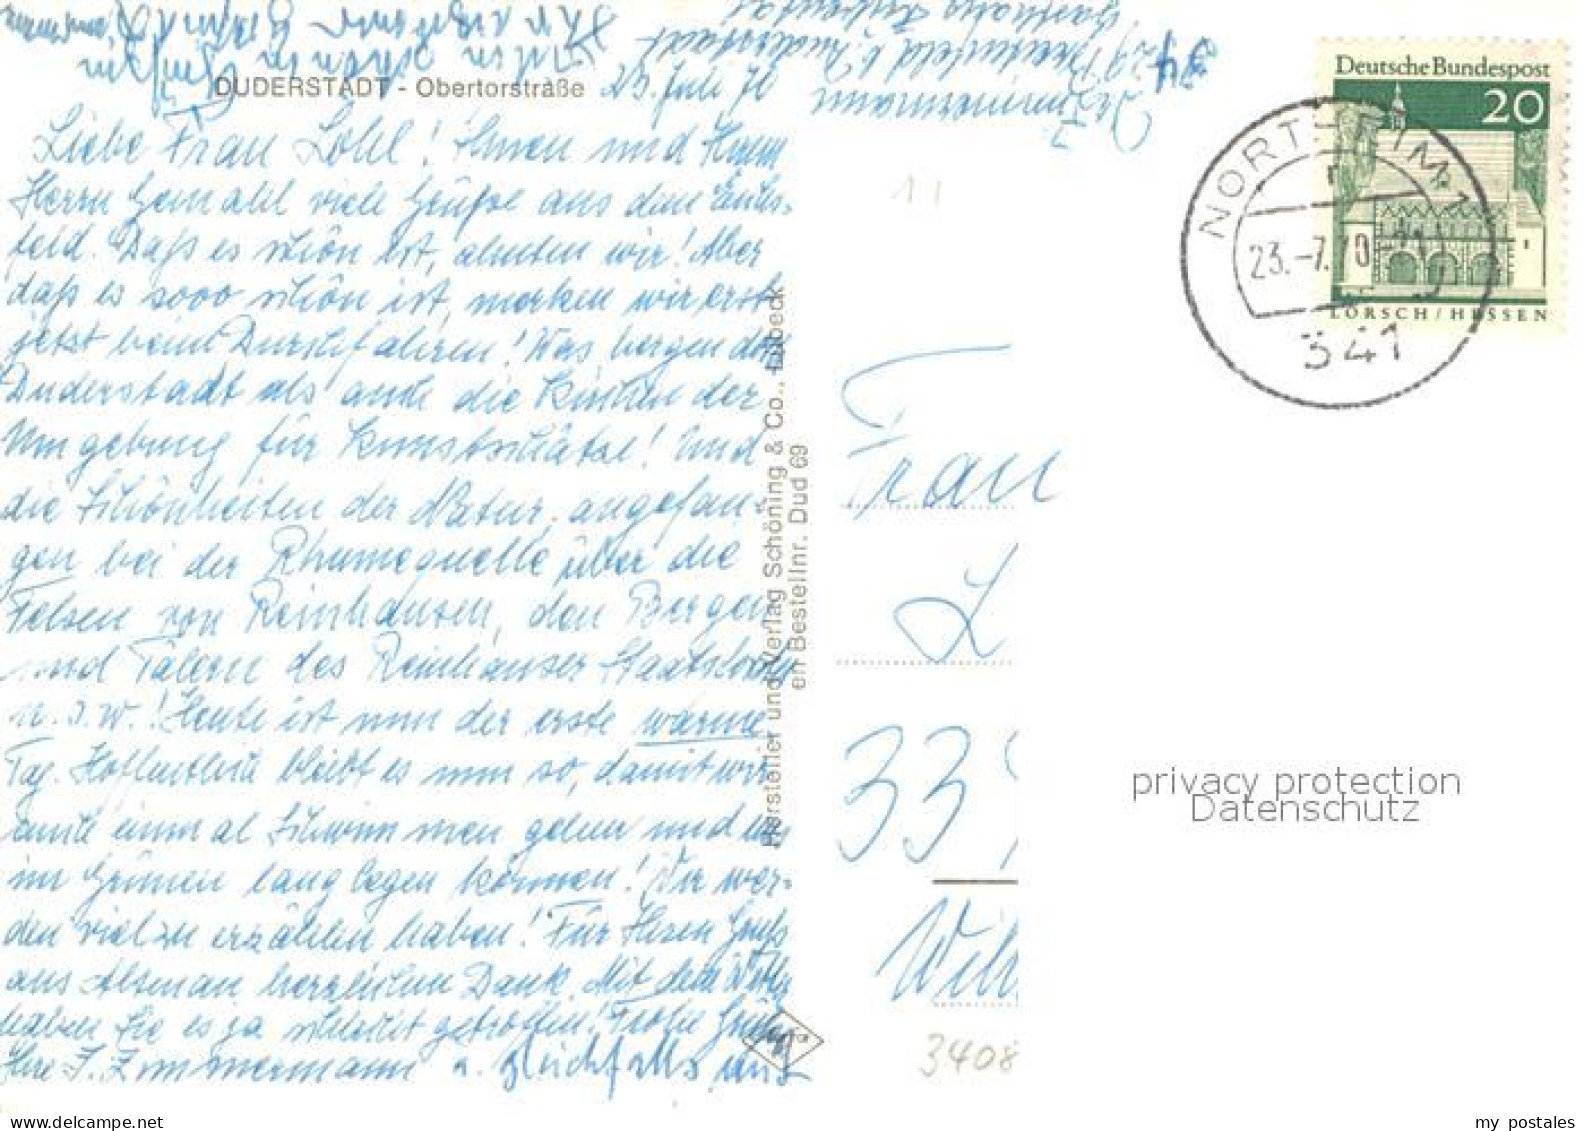 DUDERSTADT - Obertorstraße
23. Juli 70
Liebe Frau Lohl! Ihnen und Ihrem
Herrn Gemahl viele Grüße aus dem Eichs-
feld. Daß es schön ist, ahnten wir! Aber
daß es sooo schön ist, merken wir erst
jetzt beim Durchfahren! Was bergen doch
Duderstadt als auch die Kirchen der
Umgebung für Kunstschätze! Und
die Schönheiten der Natur, angefan-
gen bei der Rhumequelle über die
Felsen von Reinhausen, den Bergen
und Tälern des Reinhäuser
u. s. w.! Heute ist nun der erste warme
Tag. Hoffentlich bleibt es nun so, damit wir
auch einmal schwimmen gehen und
im Grünen lang liegen können! Wir wer-
den viel zu erzählen haben! Für Ihren Gruß
aus herzlichen Dank. Mit dem
haben Sie es ja schlecht getroffen! Frohe Grüße
Ihre I. Zimmermann u. gleichfalls
Hersteller und Verlag Schöning & Co., Lübeck
en Bestellnr. Dud 69
Deutsche Bundespost
20
LORSCH/HESSEN
NORTHEIM 1
23.-7.70
341
11
Frau
L
33
3408
privacy protection
Datenschutz
my postales